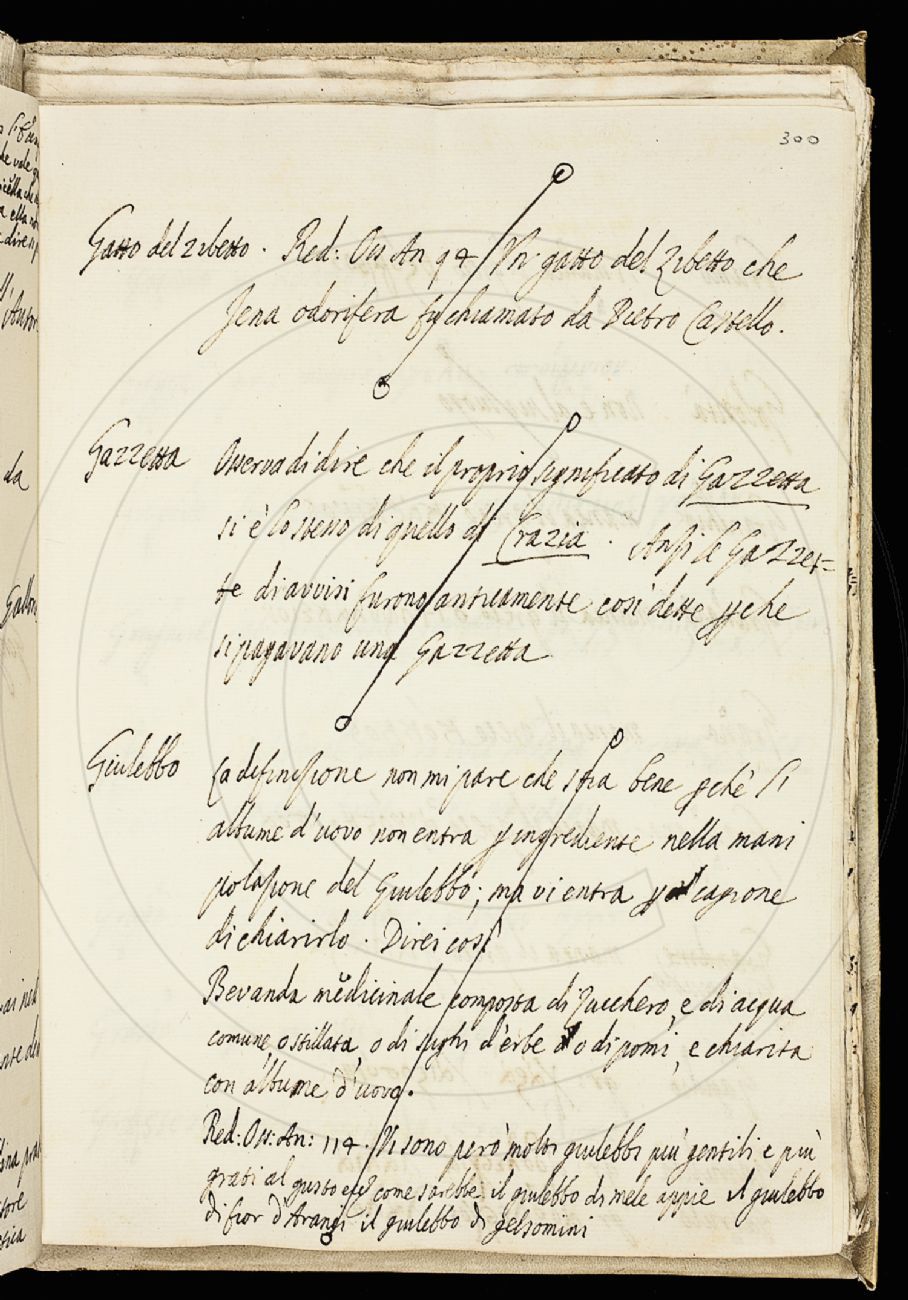 300
Gatto del Zibetto. Red: Oss An 94 Un gatto del Zibetto che
Jena odorifera fu chiamato da Pietro Castello.
Gazzetta Osserva di dire che il proprio significato di Gazzetta
si è lo stesso di quello di Crazia. Anzi le Gazzet=
te di avvisi furono anticamente così dette p che
si pagavano una Gazzetta
Giulebbo La definizione non mi pare che stia bene pchè l'
albume d'uovo non entra p ingrediente nella mani
polazione del Giulebbo; ma vi entra p cagione
di chiarirlo. Direi così
Bevanda medicinale composta di Zucchero, e di acqua
comune, o stillata, o di sughi d'erbe o di pomi, e chiarita
con albume d'uovo.
Red: Oss: An: 114. Vi sono però molti giulebbi più gentili e più
grati al gusto come sarebbe il giulebbo di mele appie il giulebbo
di fior d'Aranci il giulebbo di gelsomini
da